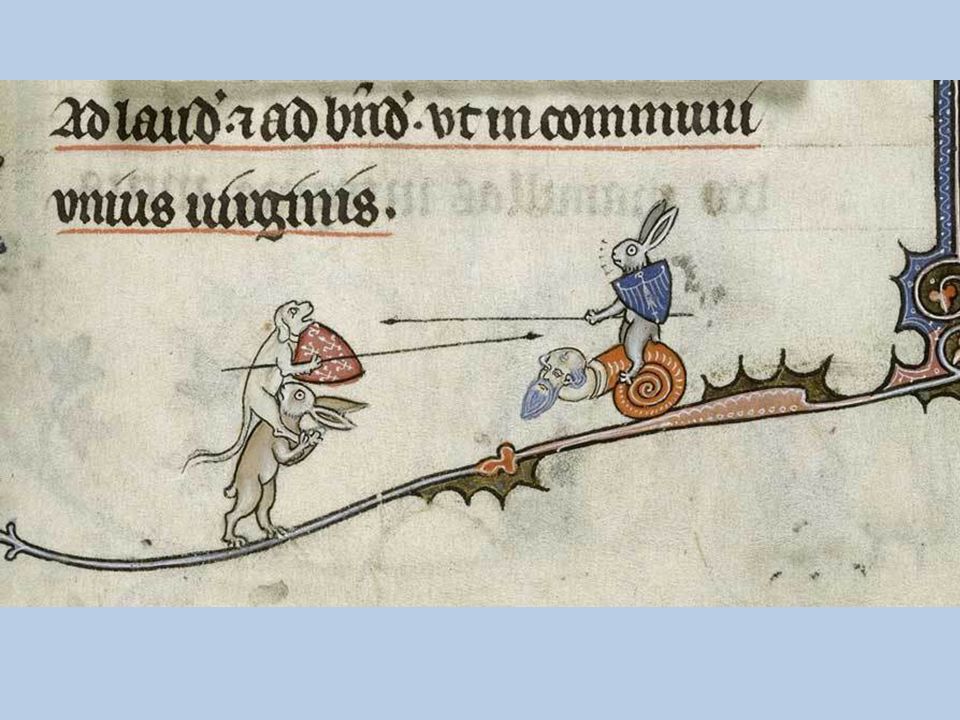 Ad laud'. ⁊ ad bn̄d'. vt in communi
vnius uirginis.